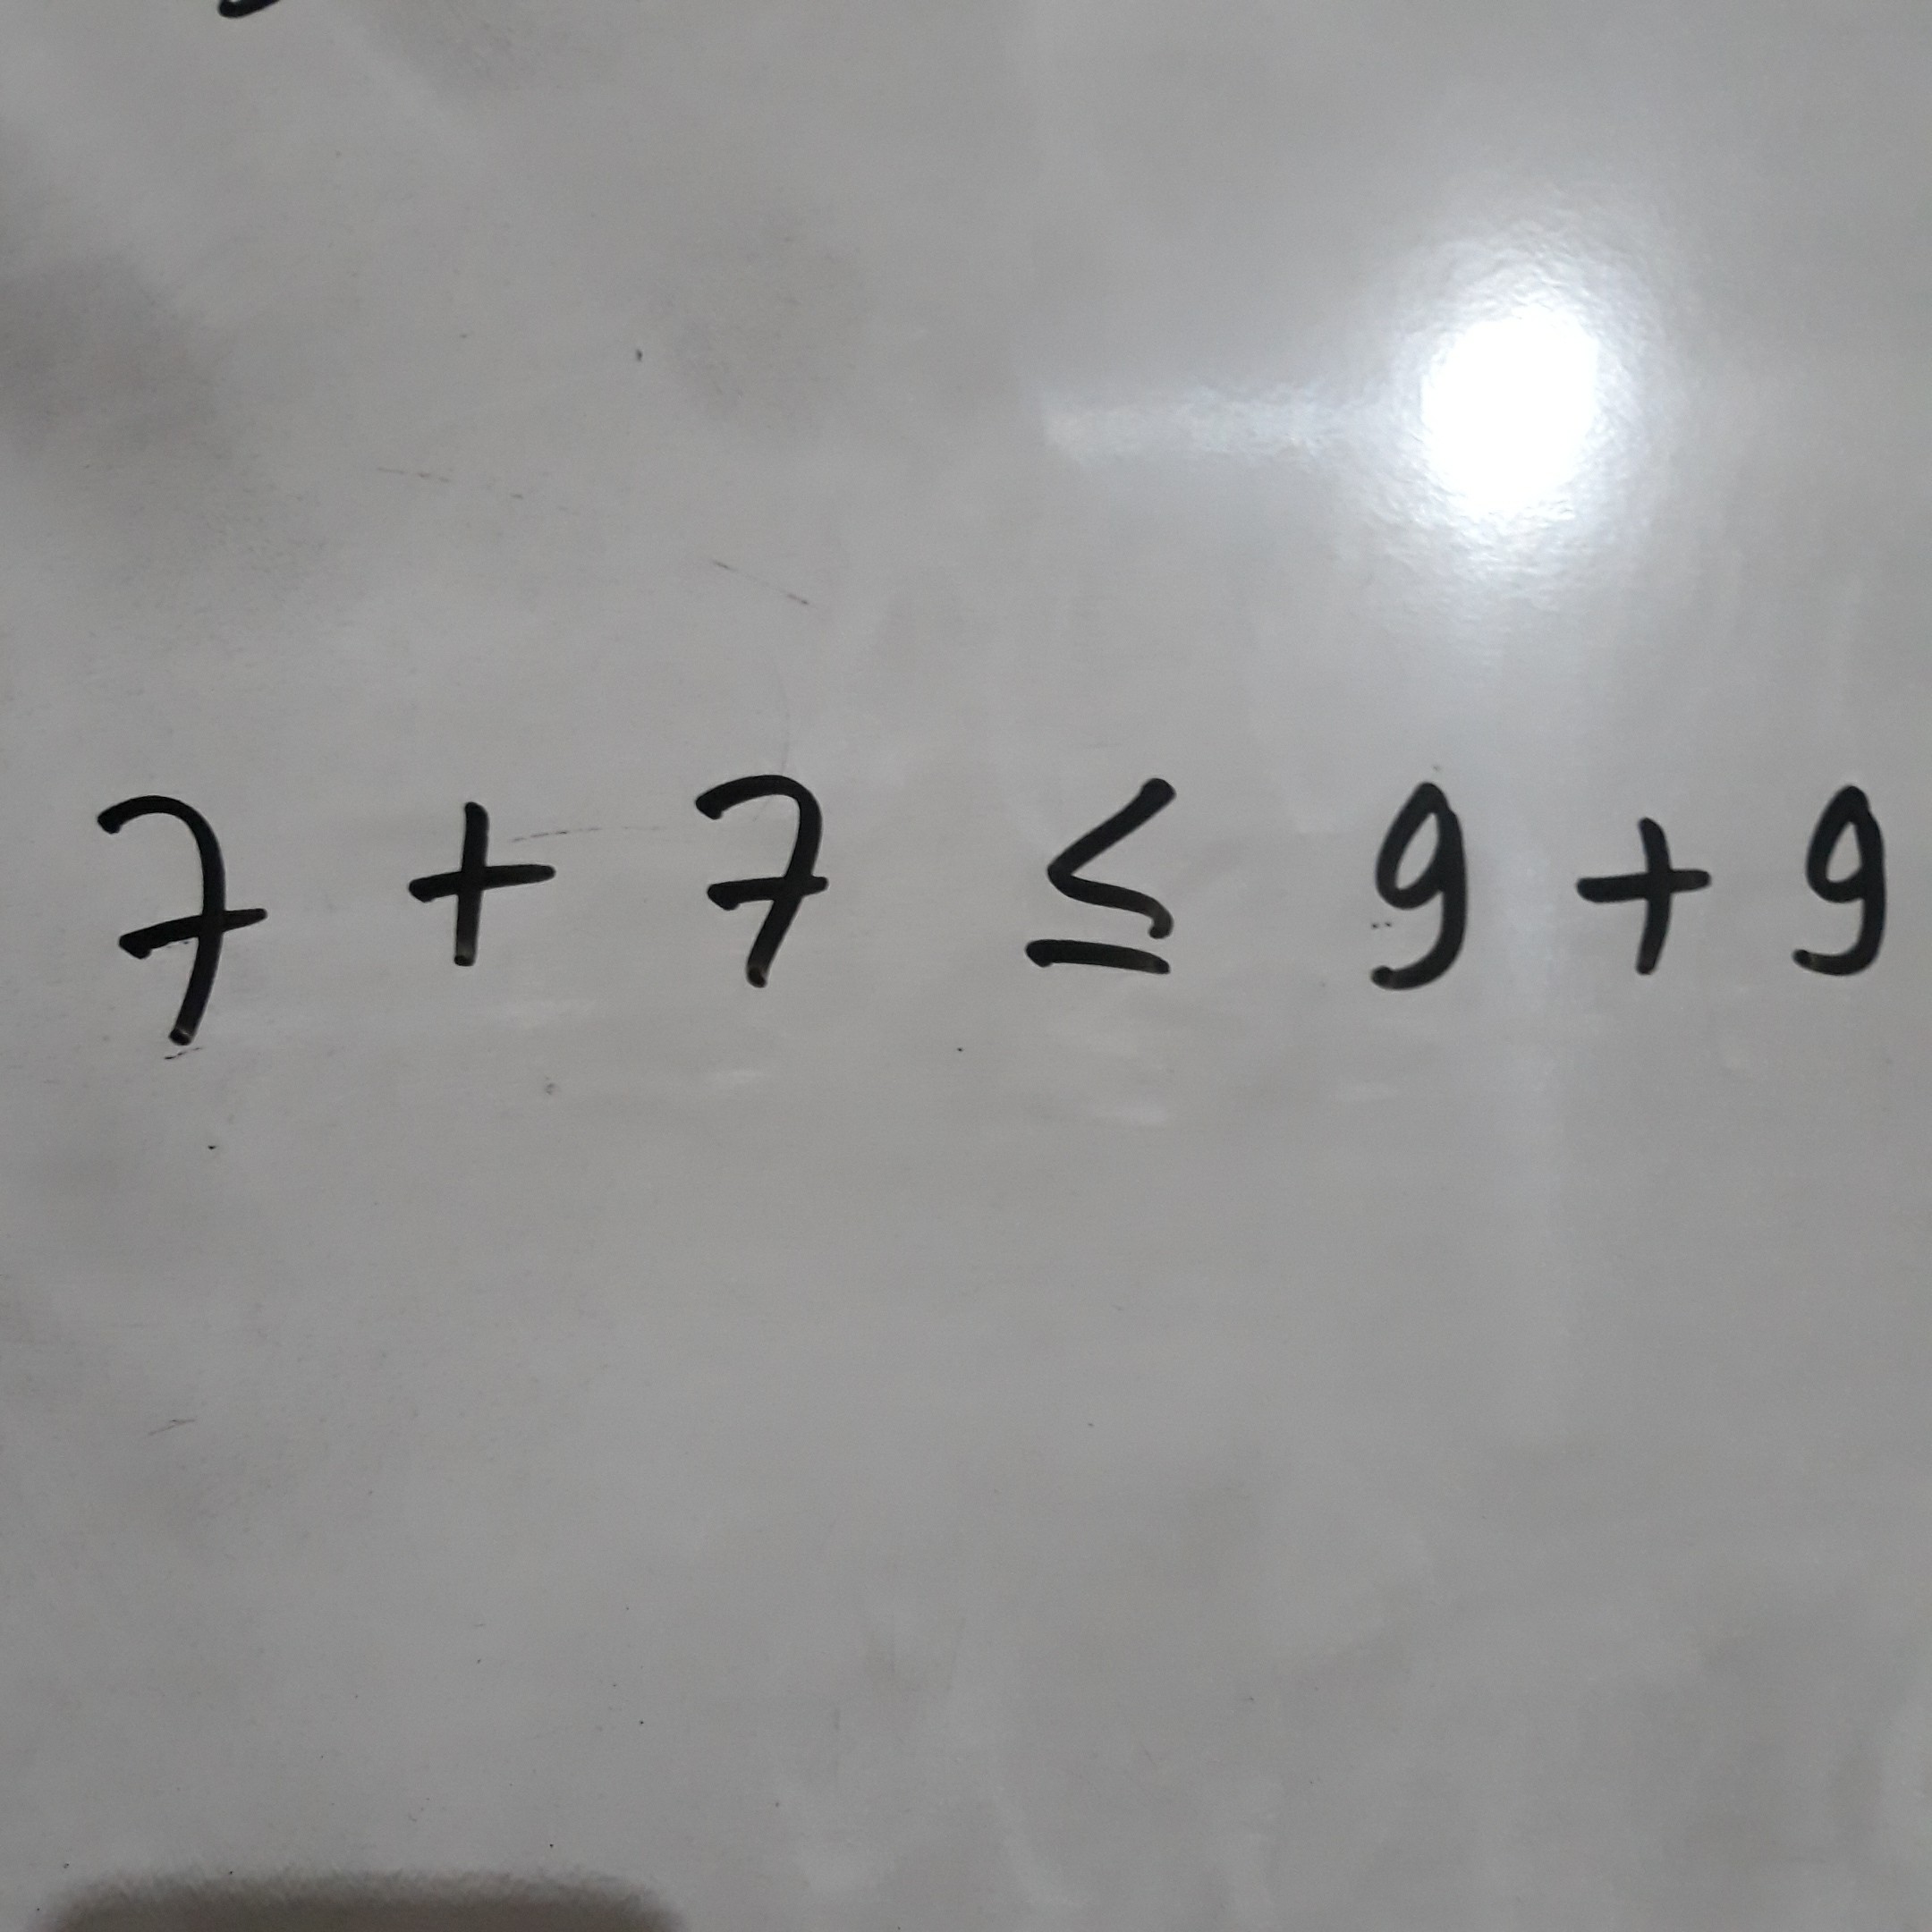 7 + 7 ≤ 9 + 9